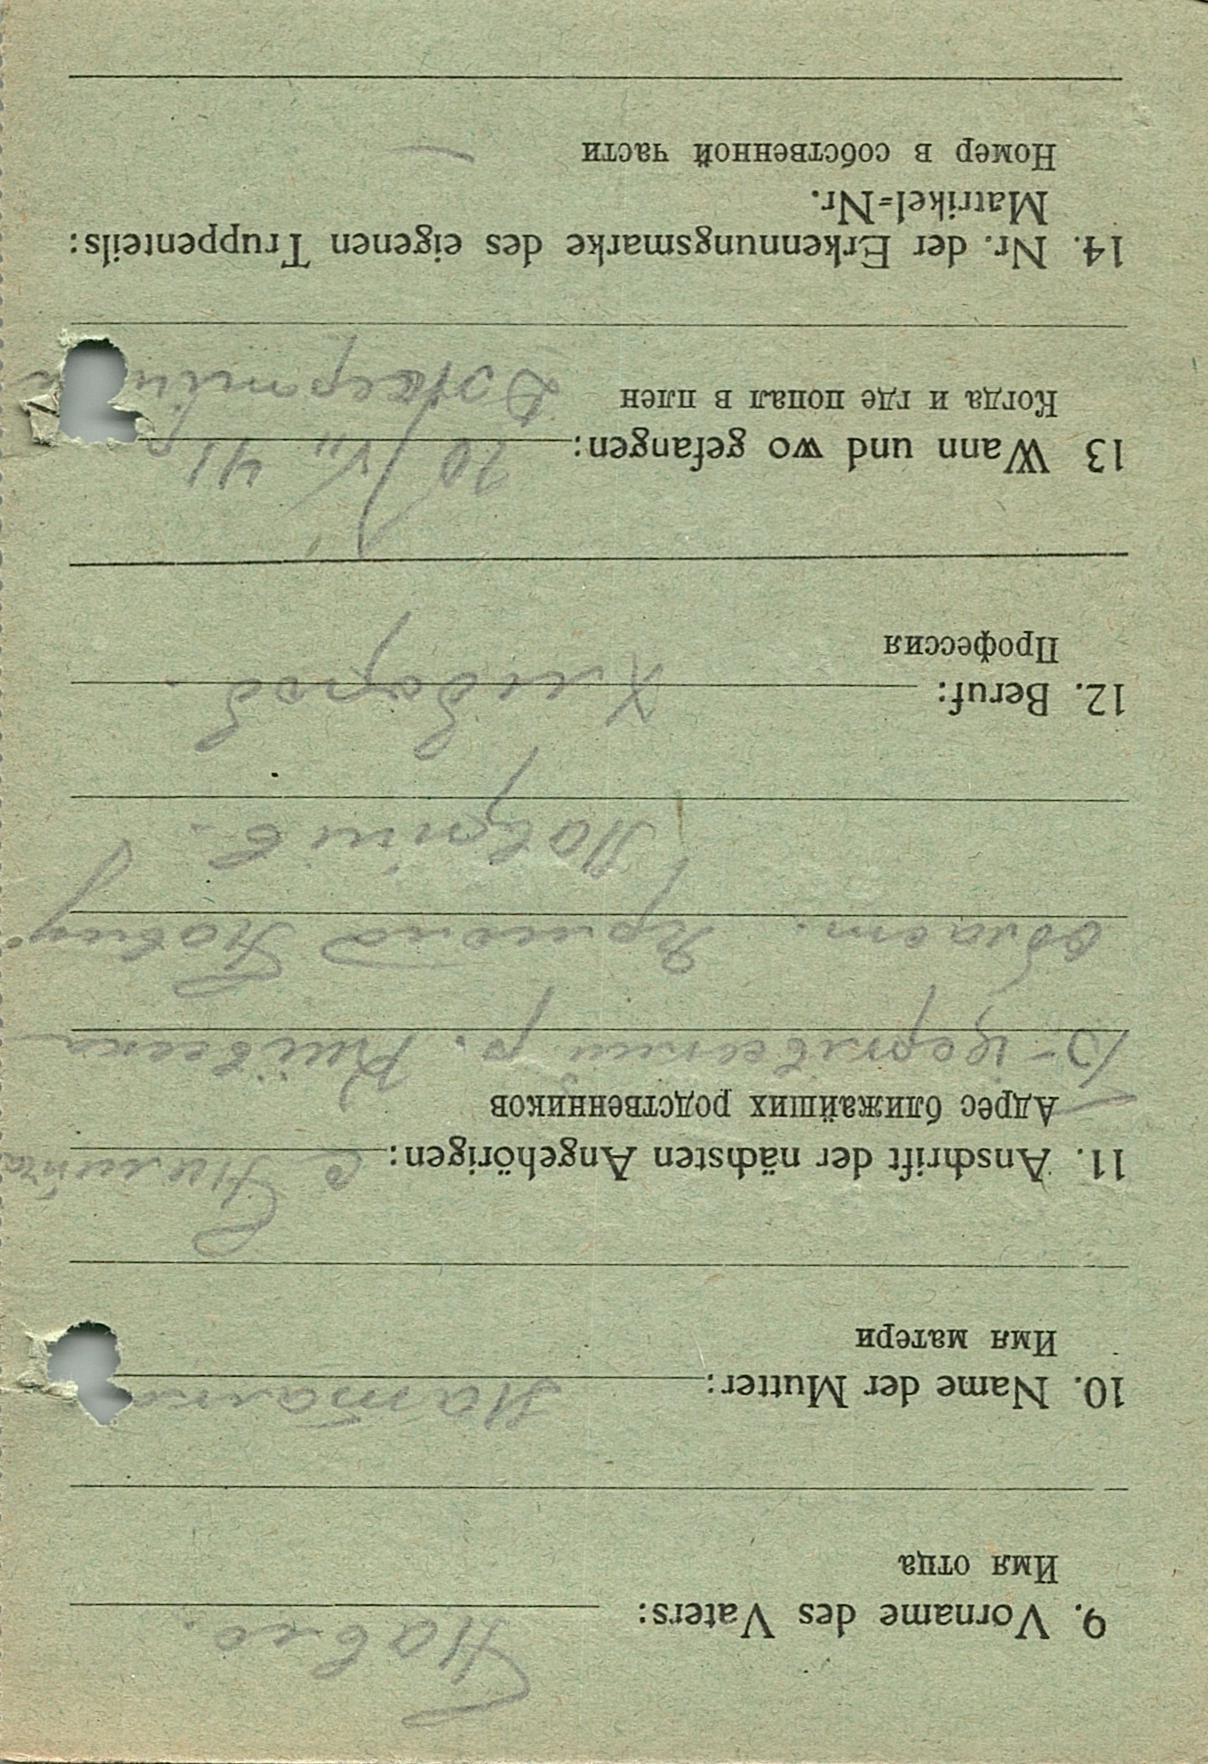 9. Vorname des Vaters: Павло.
Имя отца
10. Name der Mutter: Наталка
Имя матери
11. Anschrift der nächsten Angehörigen: с
Адрес ближайших родственников
Б-церківський р. Київська
област.
12. Beruf: Хлібороб.
Профессия
13 Wann und wo gefangen: 20/VII 41 р
Когда и где попал в плен
14. Nr. der Erkennungsmarke des eigenen Truppenteils:
Matrikel=Nr.
Номер в собственной части —